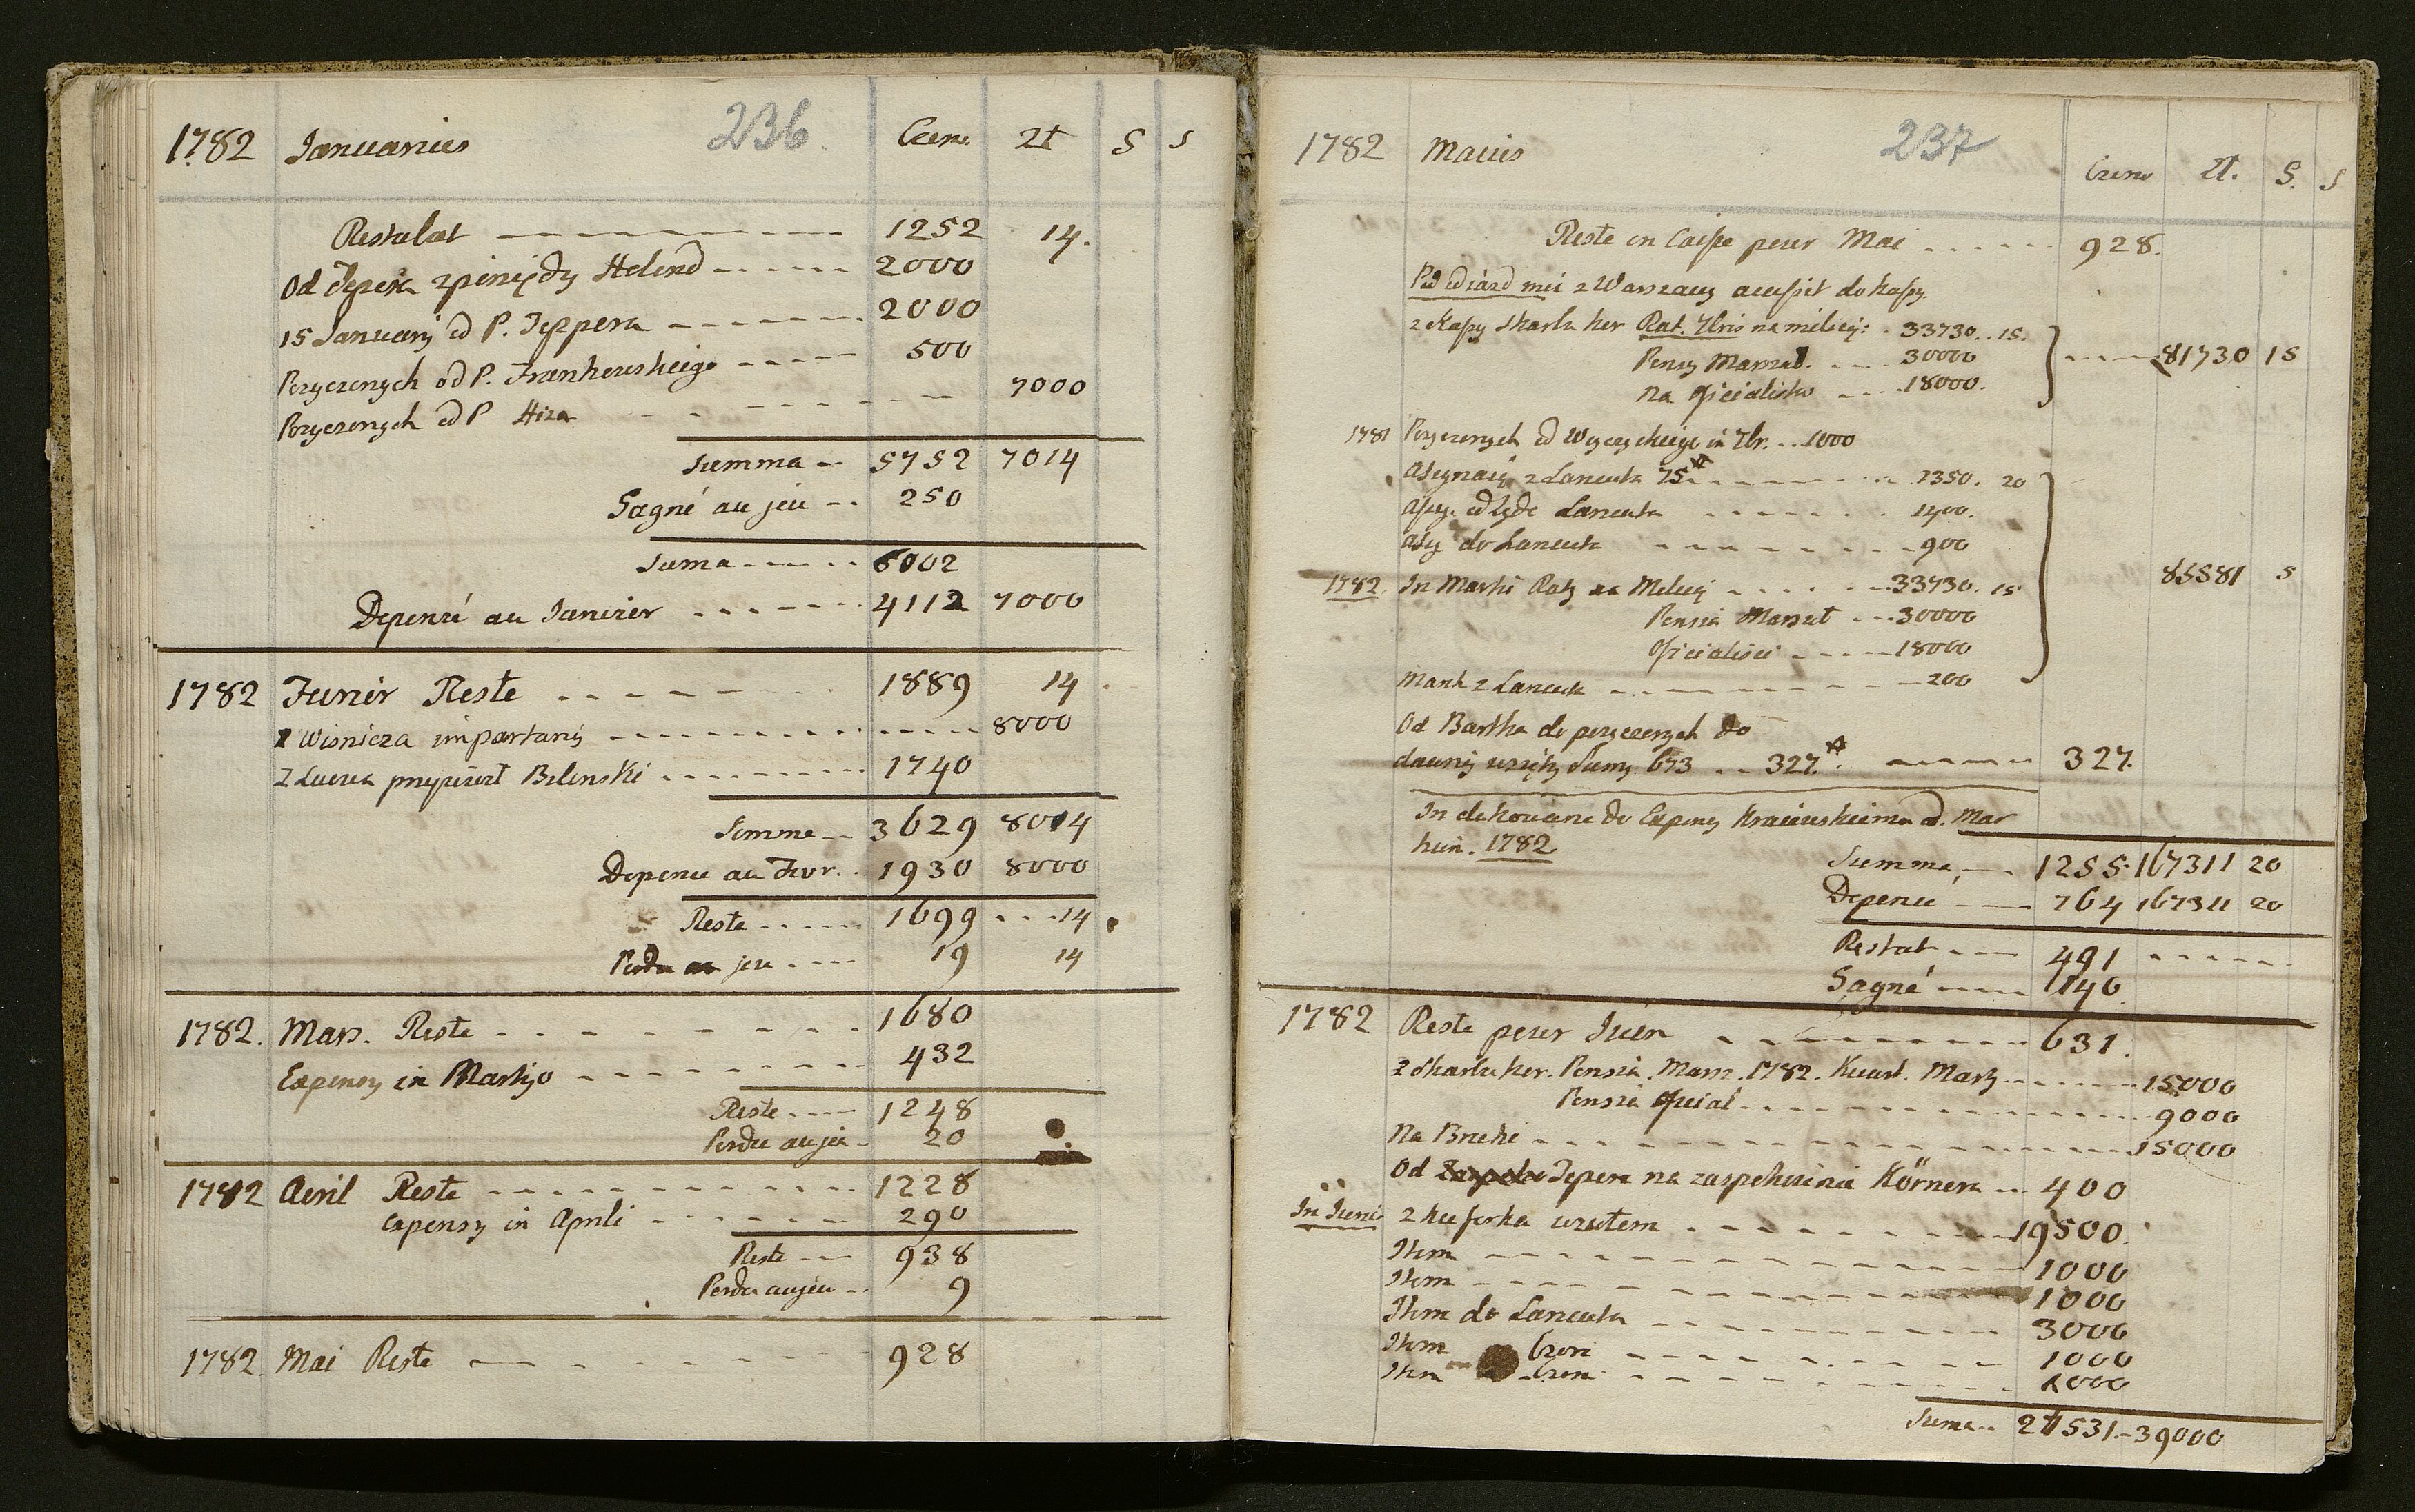 1782 Ianuarius 236 Czerw. Zł S S
Restabat 1252 14.
Od Tepera z pieniędzy Helene 2000
15 Januarij od P. Teppera 2000
Pozyczonych od P. Frankowskiego 500
Pozyczonych od P Hiza 7000
Summa 5752 7014
Gagné au jeu 250
Suma 6002
Depensé au Janvier 4112 7000
1782 Fevrier Reste 1889 14
z Wisnicza importanij 8000
Z Lucka przywiozł Bilinski 1740
Somme 3629 8014
Depense au Fevr. 1930 8000
Reste 1699 14
Perdu au jeu 19 14
1782. Mars. Reste 1680
Expensy in Martijo 432
Reste 1248
Perdu au jeu 20
1782 Avril Reste 1228
Expensy in Aprili 290
Reste 938
Perdu au jeu 9
1782. Mai Reste 928
1782 Maius 237 Czerw Zł. S. S
Reste en Caisse pour Mai 928.
z Warszawy do kassy.
z Kassy Skarbu Kor Rat. 7bris na milicij: 33730. 15.
Pensy Marszał. 30000 81730 15
Na oficialistow 18000.
1781 Pozyczonych od in 7br. 1000
Asygnacij z Lancuta 75 # 1350. 20
Lancuta
Asy do Lancuta 900
85581 5
1782. In Martii Raty na Milicij 33730. 15
Pensia Marszał 30000
Oficialisci 18000
z Lancuta 200
Od Bartha do pozyczonych do
dawnij wziętij Sumy 673 .. 327. # 327.
In do Expensy d. Mar
1782
Summa 1255. 167311 20
Depensé 764 167311 20
Restat 491
Gagné 140
1782 Reste pour Juin 631.
z Skarbu Kor. Pensia. Marsz. 1782. Kwart. Marty 15000
Pensia oficial 9000
Na 15000
Od Tepera na zaspokoienie Körnera 400
In Iuni z kuferka wziołem 19500.
Item 1000
Item 1000
Item do Lancuta 3000
Item 1000
Item 1000
Suma 27531.-39000